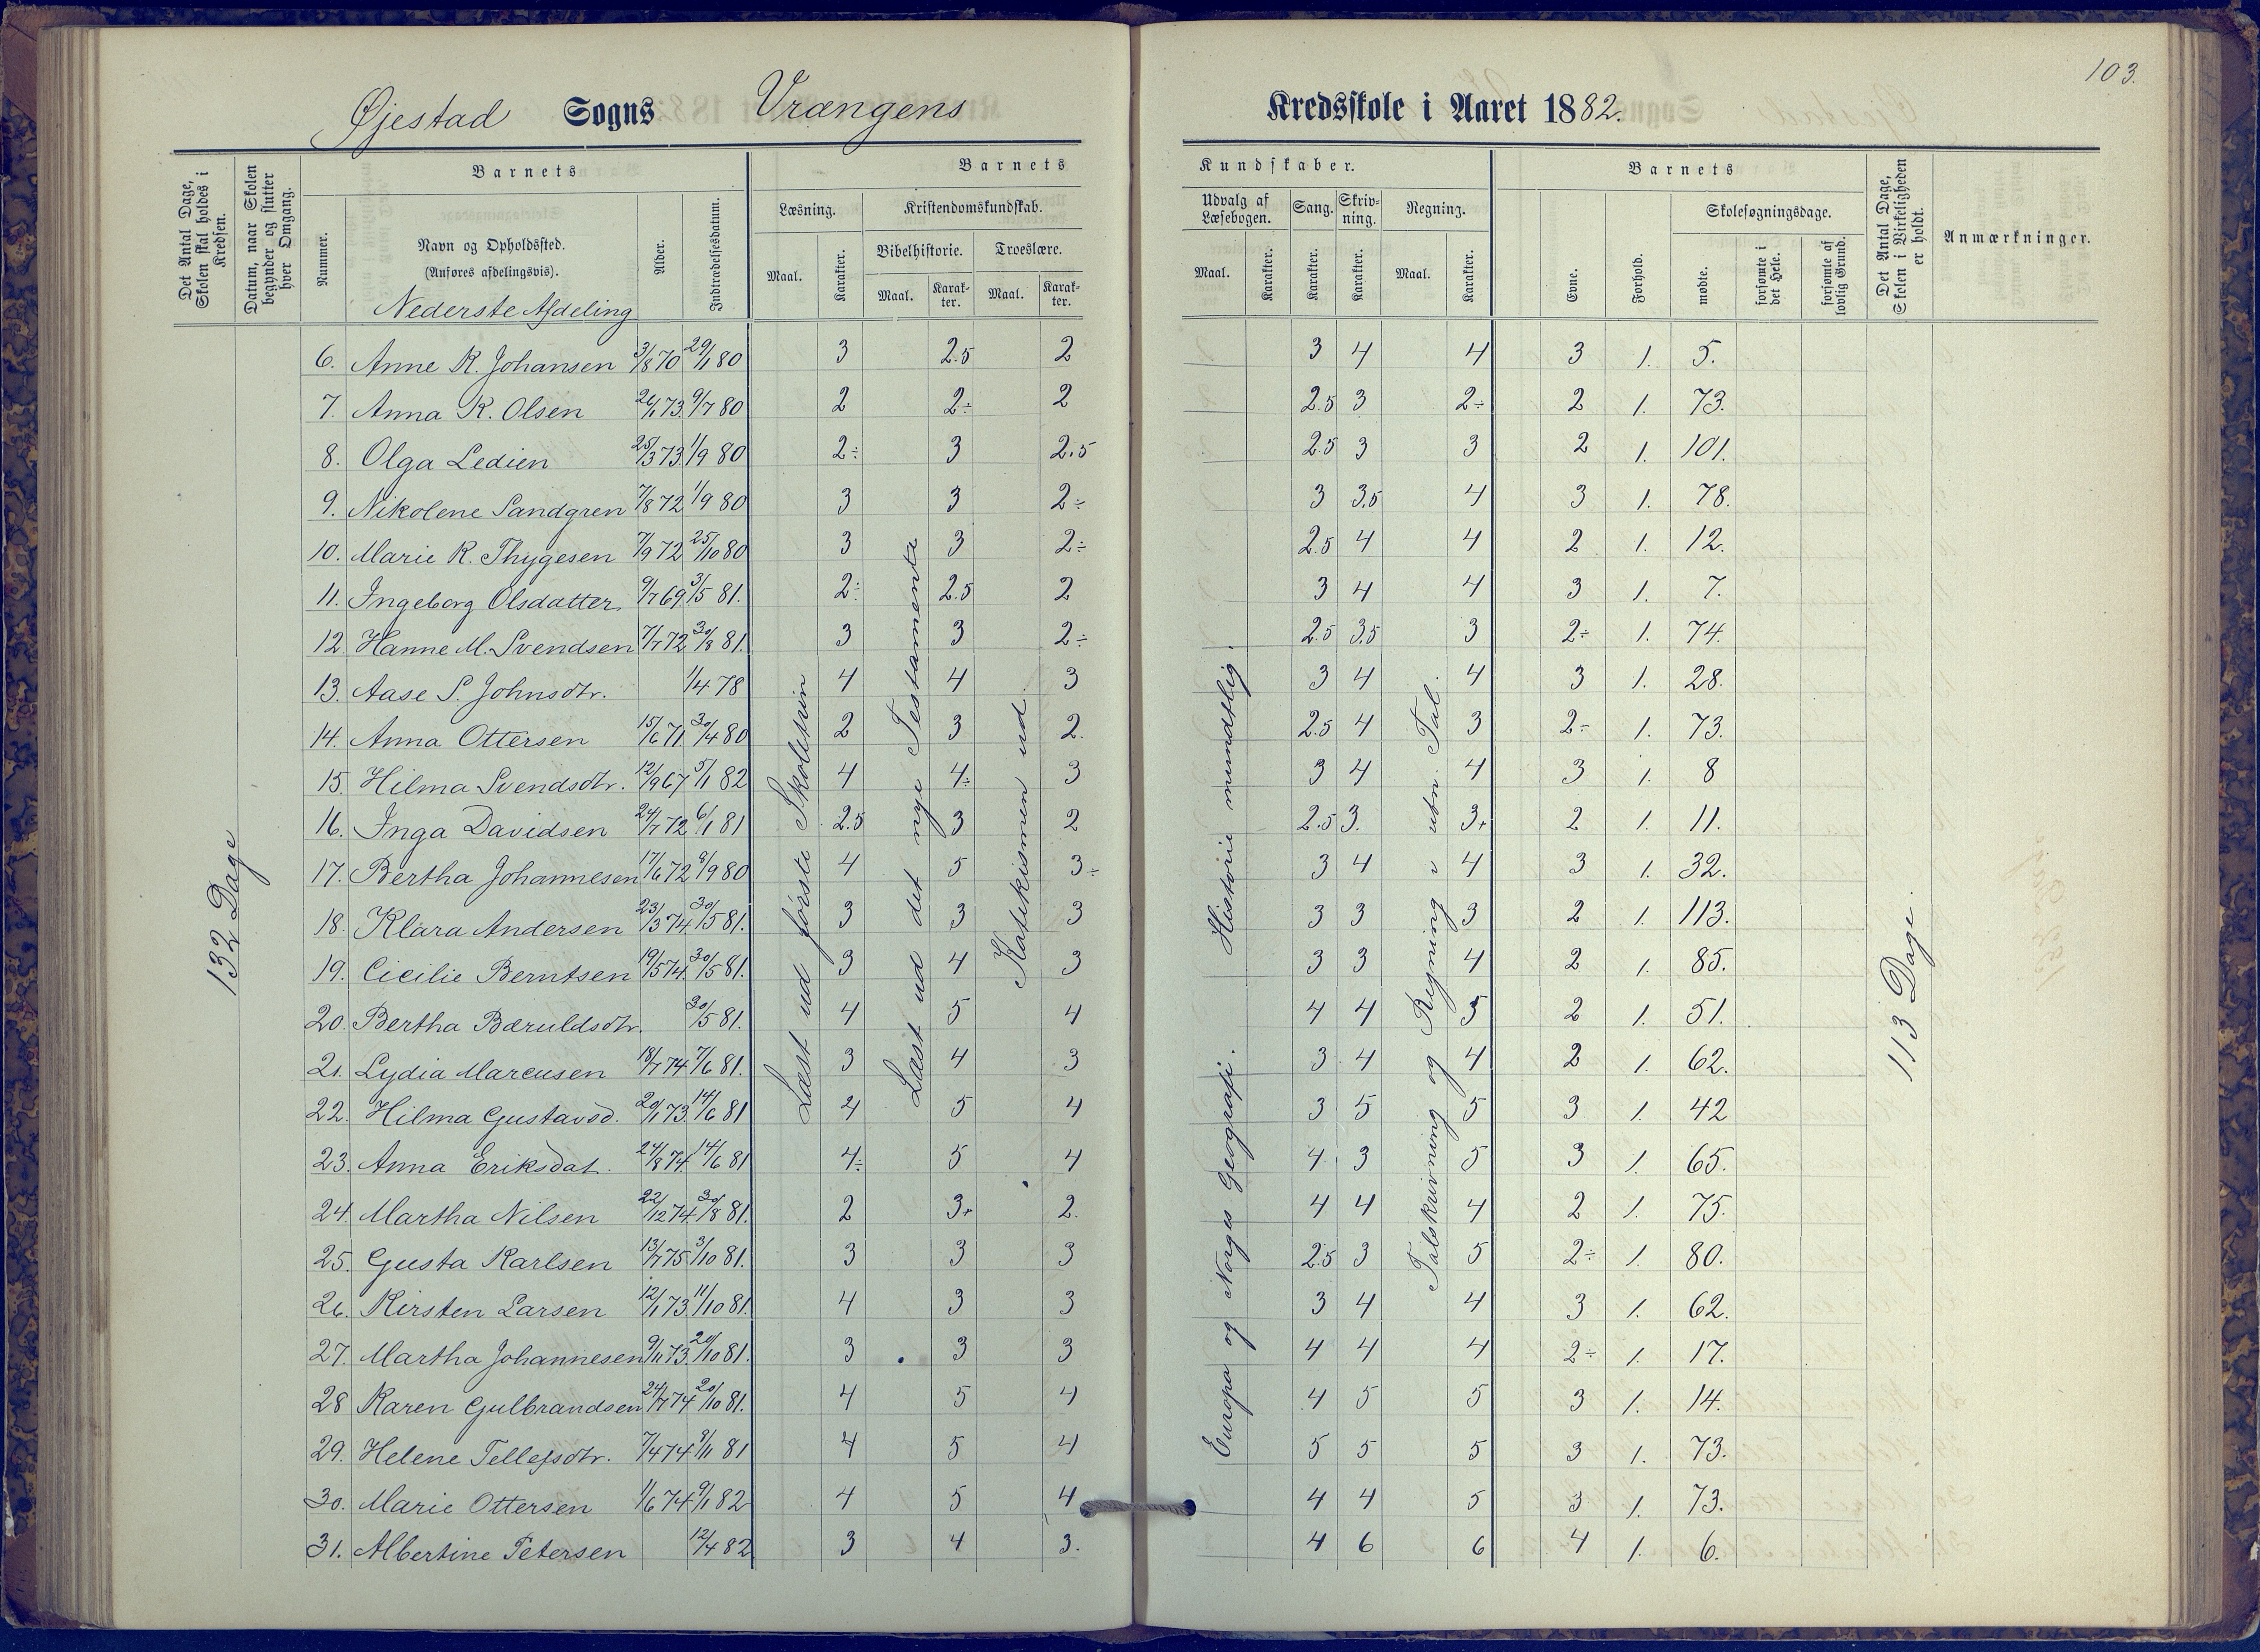 103.
Øjestad Sogns Vrangens Kredsskole i Aaret 1882.
Det Antal Dage, Skolen skal holdes i Kredsen.
Datum, naar Skolen begynder og slutter hver Omgang.
Barnets
Nummer.
Navn og Opholdssted.
(Anføres afdelingsvis).
Alder.
Indtrædelsesdatum.
Barnets Kundskaber.
Læsning.
Maal.
Karakter.
Kristendomskundskab.
Bibelhistorie.
Maal.
Karakter.
Troeslære.
Maal.
Karakter.
Udvalg af Læsebogen.
Maal.
Karakter.
Sang.
Karakter.
Skrivning.
Karakter.
Regning.
Maal.
Karakter.
Barnets
Evne.
Forhold.
Skolesøgningsdage.
mødte.
forsømte i det Hele.
forsømte af lovlig Grund.
Det Antal Dage, Skolen i Virkeligheden er holdt.
Anmærkninger.
Nederste Afdeling
6. Anne R. Johansen 3/8 70 29/1 80 3 2.5 2 3 4 4 3 1. 5.
7. Anna K. Olsen 26/1 73. 9/7 80 2 2÷ 2 2.5 3 2÷ 2 1. 73.
8. Olga Ledien 25/3 73 1/9 80 2÷ 3 2.5 2.5 3 3 2 1. 101.
9. Nikolene Sandgren 7/8 72 1/9 80 3 3 2÷ 3 3.5 4 3 1. 78.
10. Marie K. Thygesen 7/9 72 25/10 80 3 3 2÷ 2.5 4 4 2 1. 12.
11. Ingeborg Olsdatter 9/7 69 3/5 81. 2÷ 2.5 2 3 4 4 3 1. 7.
12. Hanne M. Svendsen 7/7 72 30/8 81. 3 3 2÷ 2.5 3.5 3 2÷ 1. 74.
13. Aase S. Johnsdtr. 1/4 78 4 4 3 3 4 4 3 1. 28.
14. Anna Ottersen 15/6 71. 30/4 80 2 3 2. 2.5 4 3 2÷ 1. 73.
15. Hilma Svendsdtr. 12/9 67 5/1 82 4 4÷ 3 3 4 4 3 1. 8
16. Inga Davidsen 24/7 72 6/1 81 2.5 3 2 2.5 3. 3+ 2 1. 11.
17. Bertha Johannesen 17/6 72 8/9 80 4 5 3÷ 3 4 4 3 1. 32.
18. Klara Andersen 23/3 74 30/5 81. 3 3 3 3 3 3 2 1. 113.
19. Cicilie Berntsen 19/5 74. 30/5 81. 3 4 3 3 3 4 2 1. 85.
20. Bertha Bæruldsdtr. 30/5 81. 4 5 4 4 4 5 2 1. 51.
21. Lydia Marcusen 18/7 74 7/6 81. 3 4 3 3 4 4 2 1. 62.
22. Hilma Gustavsd. 20/1 73. 14/6 81 4 5 4 3 5 5 3 1. 42
23. Anna Eriksdat. 24/8 74. 14/6 81 4÷ 5 4 4 3 5 3 1. 65.
24. Martha Nilsen 22/12 74 30/8 81. 2 3+ 2. 4 4 4 2 1. 75.
25. Gusta Karlsen 13/7 75 3/10 81. 3 3 3 2.5 3 5 2÷ 1. 80.
26. Kirsten Larsen 12/1 73 11/10 81. 4 3 3 3 4 4 3 1. 62.
27. Martha Johannesen 9/11 73. 20/10 81. 3 3 3 4 4 4 2÷ 1. 17.
28 Karen Gulbrandsen 24/7 74 20/10 81. 4 5 4 4 5 5 3 1. 14.
29. Helene Tellefsdtr. 7/4 74 8/11 81 4 5 4 5 5 5 3 1. 73.
30. Marie Ottersen 1/6 74 9/1 82 4 5 4 4 4 5 3 1. 73.
31. Albertine Petersen 12/4 82 3 4 3. 4 6 6 4 1. 6.
132 Dage
Læst ud første Skoletrin
Læst ud det nye Testamente
Katekismen ud
Europa og Norges Geografi. Historie mundtlig.
Talskrivning og Regning i ubn. Tal.
113 Dage.